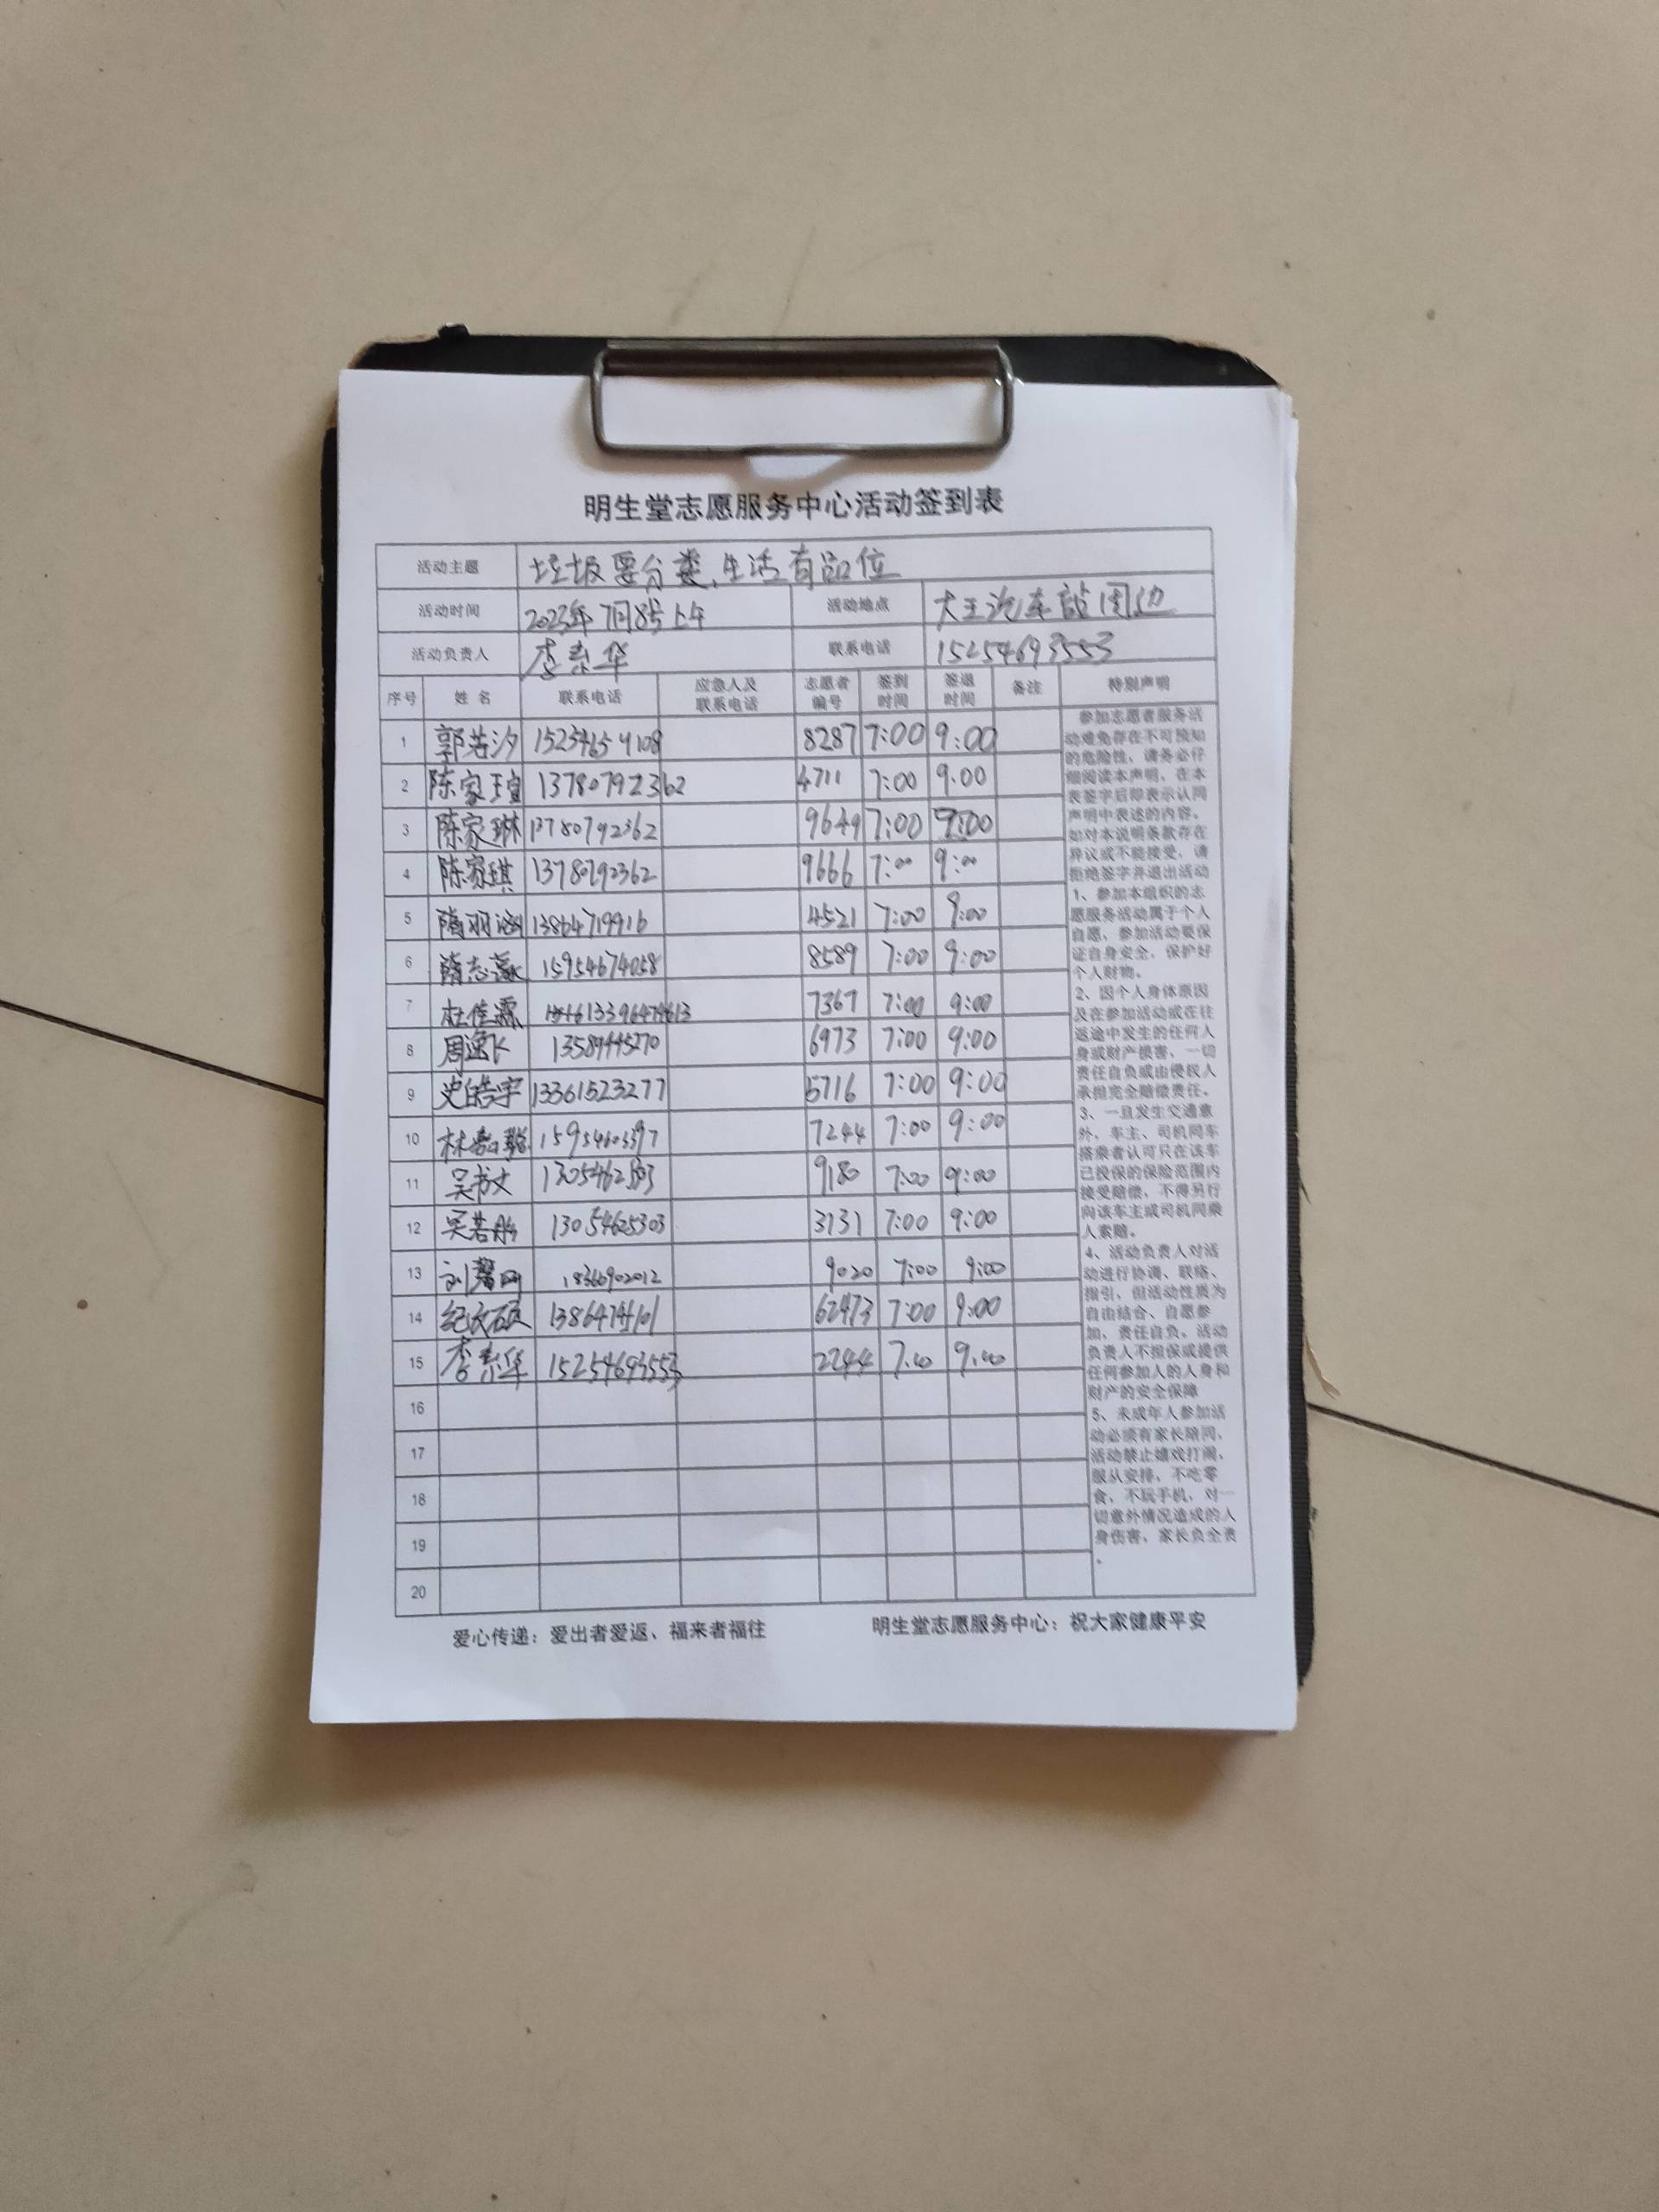 明生堂志愿服务中心活动签到表
活动主题 垃圾要分类、生活有品位
活动时间 2023年7月8号上午 活动地点 大王汽车站周边
活动负责人 李素华 联系电话 15254693553
序号 姓名 联系电话 应急人及联系电话 志愿者编号 签到时间 签退时间 备注 特别声明
1 郭若汐 8287 7:00 9:00
2 陈家瑄 13780792362 4711 7:00 9:00
3 陈家琳 13780792362 9649 7:00 9:00
4 陈家琪 13780792362 9666 7:00 9:00
5 隋羽涵 13864719916 4521 7:00 9:00
6 隋志瀛 15954674058 8589 7:00 9:00
7 杜佳霖 7367 7:00 9:00
8 周逸飞 13589445270 6973 7:00 9:00
9 史皓宇 13361523277 5716 7:00 9:00
10 15954603397 7244 7:00 9:00
11 吴书丈 9180 7:00 9:00
12 13054625303 3131 7:00 9:00
13 9020 7:00 9:00
14 纪文硕 62473 7:00 9:00
15 李素华 15254693553 2244 7.00 9.00
16
17
18
19
20
参加志愿者服务活
动难免存在不可预知
的危险性，请务必仔
细阅读本声明，在本
表签字后即表示认同
声明中表述的内容。
如对本说明条款存在
异议或不能接受，请
拒绝签字并退出活动
1、参加本组织的志
愿服务活动属于个人
自愿，参加活动要保
证自身安全，保护好
个人财物。
2、因个人身体原因
及在参加活动或在往
返途中发生的任何人
身或财产损害，一切
责任自负或由侵权人
承担完全赔偿责任。
3、一旦发生交通意
外，车主、司机同车
搭乘者认可只在该车
已投保的保险范围内
接受赔偿，不得另行
向该车主或司机同乘
人索赔。
4、活动负责人对活
动进行协调、联络、
指引，但活动性质为
自由结合、自愿参
加、责任自负。活动
负责人不担保或提供
任何参加人的人身和
财产的安全保障
5、未成年人参加活
动必须有家长陪同，
活动禁止嬉戏打闹，
服从安排，不吃零
食，不玩手机，对一
切意外情况造成的人
身伤害，家长负全责
。
爱心传递：爱出者爱返、福来者福往 明生堂志愿服务中心：祝大家健康平安